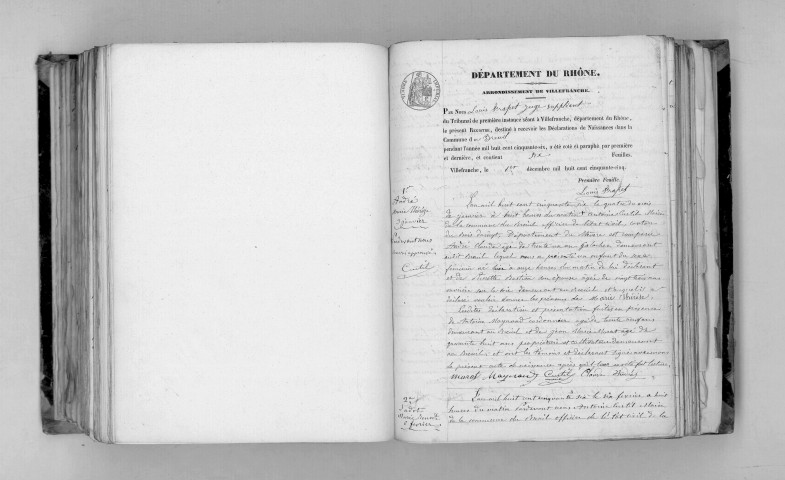 DÉPARTEMENT DU RHÔNE.
ARRONDISSEMENT DE VILLEFRANCHE.
PAR NOUS Louis Trapet juge suppléant
du Tribunal de première instance séant à Villefranche, département du Rhône,
le présent REGISTRE, destiné à recevoir les Déclarations de Naissances dans la
Commune d u Breuil
pendant l'année mil huit cent cinquante-six, a été coté et paraphé par première
et dernière, et contient six Feuilles.
Villefranche, le 1er décembre mil huit cent cinquante-cinq.
Première Feuille.
Louis Trapet
1er
André
Marie Thérèse
3 janvier
Curtil
L'an mil huit cent cinquante six le quatre du mois
de janvier à huit heures du matin Antoine Curtil Maire
de la commune du Breuil officier de l'état civil canton
du Bois d'oingt Département du Rhône est comparu
André Claude âgé de trente un ans demeurant
audit Breuil lequel nous a présenté un enfant du sexe
féminin né hier à onze heures du matin de lui déclarant
et de son épouse âgée de vingt trois ans
demeurant au Breuil et auquel il a
déclaré vouloir donner les prénoms de Marie Thérèse
Lesdites déclaration et présentation faites en présence
de Antoine Maynand cordonnier âgé de trente
demeurant au Breuil et de Jean Marie Marcel âgé de
quarante huit ans propriétaire et cultivateur demeurant
au Breuil et ont les témoins et déclarant signé avec nous
le présent acte de naissance après qu'il leur en a été fait lecture,
Marcel Maynand Curtil Claude André
2me
Marie
6 février
L'an mil huit cent cinquante six le six février à huit
heures du matin pardevant nous Antoine Curtil Maire
de la commune du Breuil officier de l'état civil de la